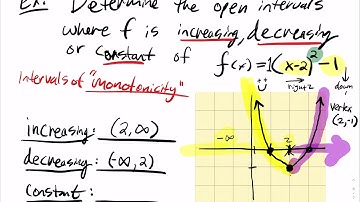 Ex: Determine the open intervals
where f is increasing, decreasing
or constant of f(x) = 1(x-2)² - 1
++ right 2 down
Intervals of "monotonicity"
vertex
(2,-1)
-∞ 2
increasing: (2,∞)
decreasing: (-∞,2)
constant: